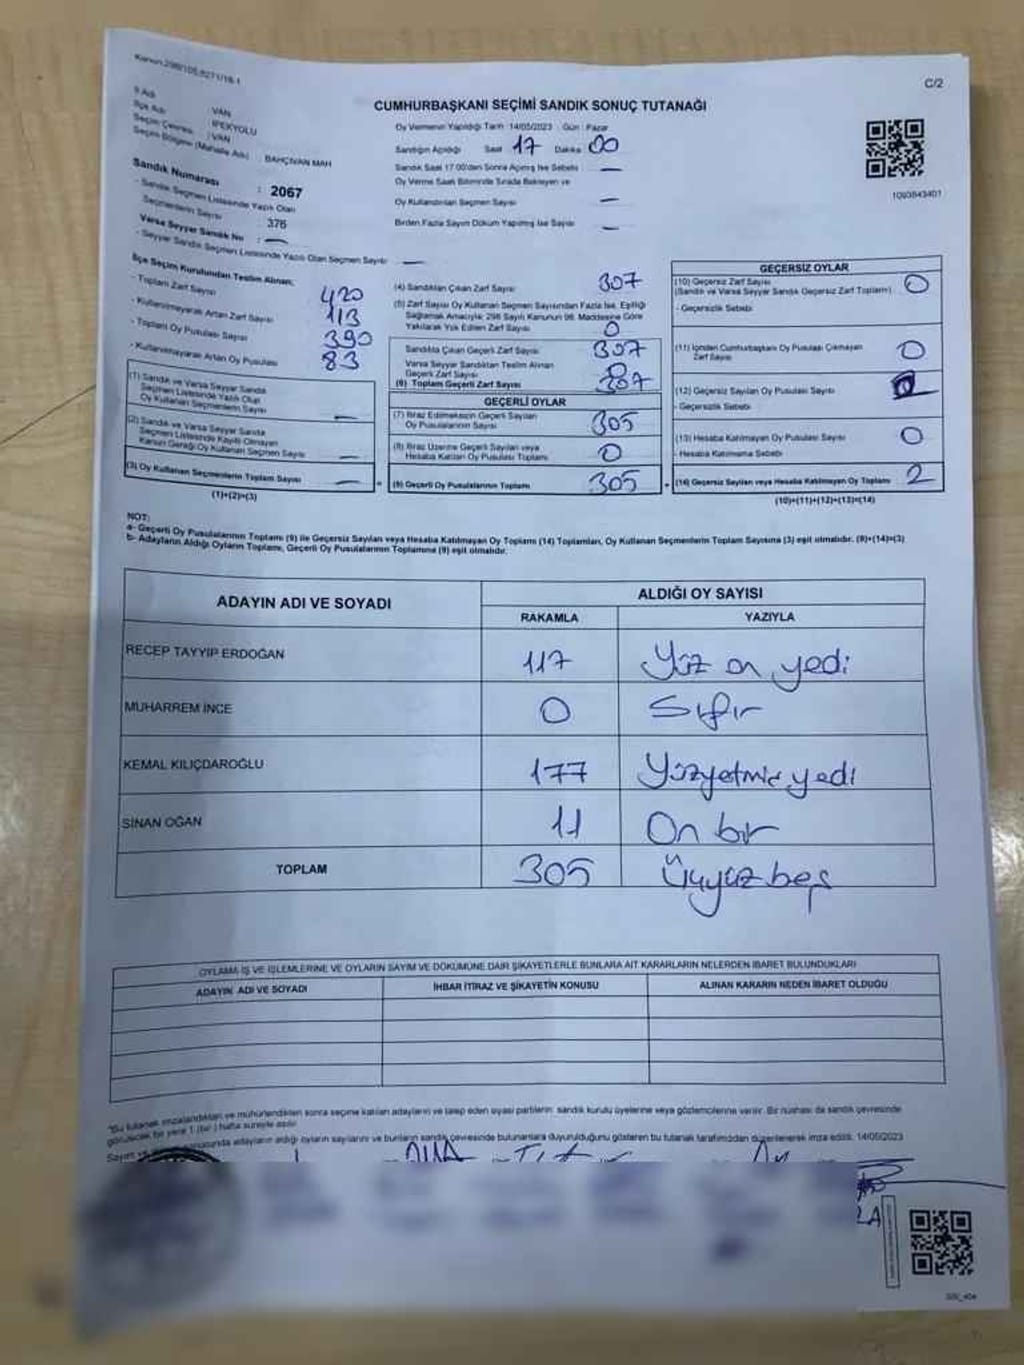 Kanun:298/105,6271/18-1
C/2
CUMHURBAŞKANI SEÇİMİ SANDIK SONUÇ TUTANAĞI
İl Adı : VAN
İlçe Adı : İPEKYOLU
Seçim Çevresi : VAN
Seçim Bölgesi (Mahalle Adı) : BAHÇIVAN MAH
Sandık Numarası : 2067
- Sandık Seçmen Listesinde Yazılı Olan
Seçmenlerin Sayısı : 376
Varsa Seyyar Sandık No : —
- Seyyar Sandık Seçmen Listesinde Yazılı Olan Seçmen Sayısı —
Oy Vermenin Yapıldığı Tarih : 14/05/2023 Gün : Pazar
Sandığın Açıldığı Saat 17 Dakika 00
Sandık Saat 17:00'den Sonra Açılmış İse Sebebi —
Oy Verme Saati Bitiminde Sırada Bekleyen ve
Oy Kullandırılan Seçmen Sayısı —
Birden Fazla Sayım Döküm Yapılmış İse Sayısı —
1093843401
İlçe Seçim Kurulundan Teslim Alınan;
- Toplam Zarf Sayısı 420
- Kullanılmayarak Artan Zarf Sayısı 113
- Toplam Oy Pusulası Sayısı 390
- Kullanılmayarak Artan Oy Pusulası 83
(1) Sandık ve Varsa Seyyar Sandık
Seçmen Listesinde Yazılı Olan
Oy Kullanan Seçmenlerin Sayısı —
(2) Sandık ve Varsa Seyyar Sandık
Seçmen Listesinde Kayıtlı Olmayan
Kanun Gereği Oy Kullanan Seçmen Sayısı —
(3) Oy Kullanan Seçmenlerin Toplam Sayısı —
(1)+(2)=(3)
(4) Sandıktan Çıkan Zarf Sayısı 307
(5) Zarf Sayısı Oy Kullanan Seçmen Sayısından Fazla İse, Eşitliği
Sağlamak Amacıyla; 298 Sayılı Kanunun 98. Maddesine Göre
Yakılarak Yok Edilen Zarf Sayısı 0
Sandıkta Çıkan Geçerli Zarf Sayısı 307
Varsa Seyyar Sandıktan Teslim Alınan
Geçerli Zarf Sayısı 0
(6) Toplam Geçerli Zarf Sayısı 307
GEÇERLİ OYLAR
(7) İtiraz Edilmeksizin Geçerli Sayılan
Oy Pusulalarının Sayısı 305
(8) İtiraz Üzerine Geçerli Sayılan veya
Hesaba Katılan Oy Pusulası Toplamı 0
(9) Geçerli Oy Pusulalarının Toplamı 305
GEÇERSİZ OYLAR
(10) Geçersiz Zarf Sayısı 0
(Sandık ve Varsa Seyyar Sandık Geçersiz Zarf Toplamı)
- Geçersizlik Sebebi
(11) İçinden Cumhurbaşkanı Oy Pusulası Çıkmayan
Zarf Sayısı 0
(12) Geçersiz Sayılan Oy Pusulası Sayısı
- Geçersizlik Sebebi
(13) Hesaba Katılmayan Oy Pusulası Sayısı 0
- Hesaba Katılmama Sebebi
(14) Geçersiz Sayılan veya Hesaba Katılmayan Oy Toplamı 2
(10)+(11)+(12)+(13)=(14)
NOT:
a- Geçerli Oy Pusulalarının Toplamı (9) ile Geçersiz Sayılan veya Hesaba Katılmayan Oy Toplamı (14) Toplamları, Oy Kullanan Seçmenlerin Toplam Sayısına (3) eşit olmalıdır. (9)+(14)=(3)
b- Adayların Aldığı Oyların Toplamı, Geçerli Oy Pusulalarının Toplamına (9) eşit olmalıdır.
ADAYIN ADI VE SOYADI ALDIĞI OY SAYISI
RAKAMLA YAZIYLA
RECEP TAYYIP ERDOĞAN 117 Yüz on yedi
MUHARREM İNCE 0 Sıfır
KEMAL KILIÇDAROĞLU 177 Yüzyetmiş yedi
SİNAN OĞAN 11 On bir
TOPLAM 305 Üçyüz beş
OYLAMA İŞ VE İŞLEMLERİNE VE OYLARIN SAYIM VE DÖKÜMÜNE DAİR ŞİKAYETLERLE BUNLARA AİT KARARLARIN NELERDEN İBARET BULUNDUKLARI
ADAYIN ADI VE SOYADI İHBAR İTİRAZ VE ŞİKAYETİN KONUSU ALINAN KARARIN NEDEN İBARET OLDUĞU
"Bu tutanak imzalandıktan ve mühürlendikten sonra seçime katılan adayların ve talep eden siyasi partilerin sandık kurulu üyelerine veya gözlemcilerine verilir. Bir nüshası da sandık çevresinde
görülecek bir yere 1 (bir) hafta süreyle asılır.
adayların aldığı oyların sayılarını ve bunların sandık çevresinde bulunanlara duyurulduğunu gösteren bu tutanak tarafımızdan düzenlenerek imza edildi. 14/05/2023